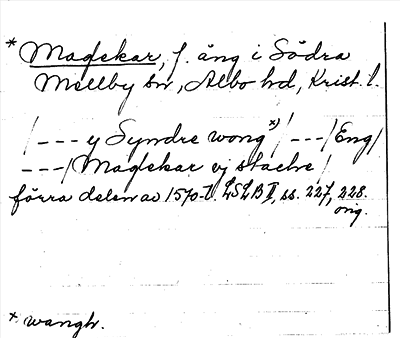 * Maglekar, f. äng i Södra
Mellby sn, Albo hd, Krist. l.
/--- y Syndre wong *)/ ---/Eng/
---/Maglekar ej stæche/
förra delen av 1570-t. LSLB II, ss. 227, 228.
orig.
* wangh.